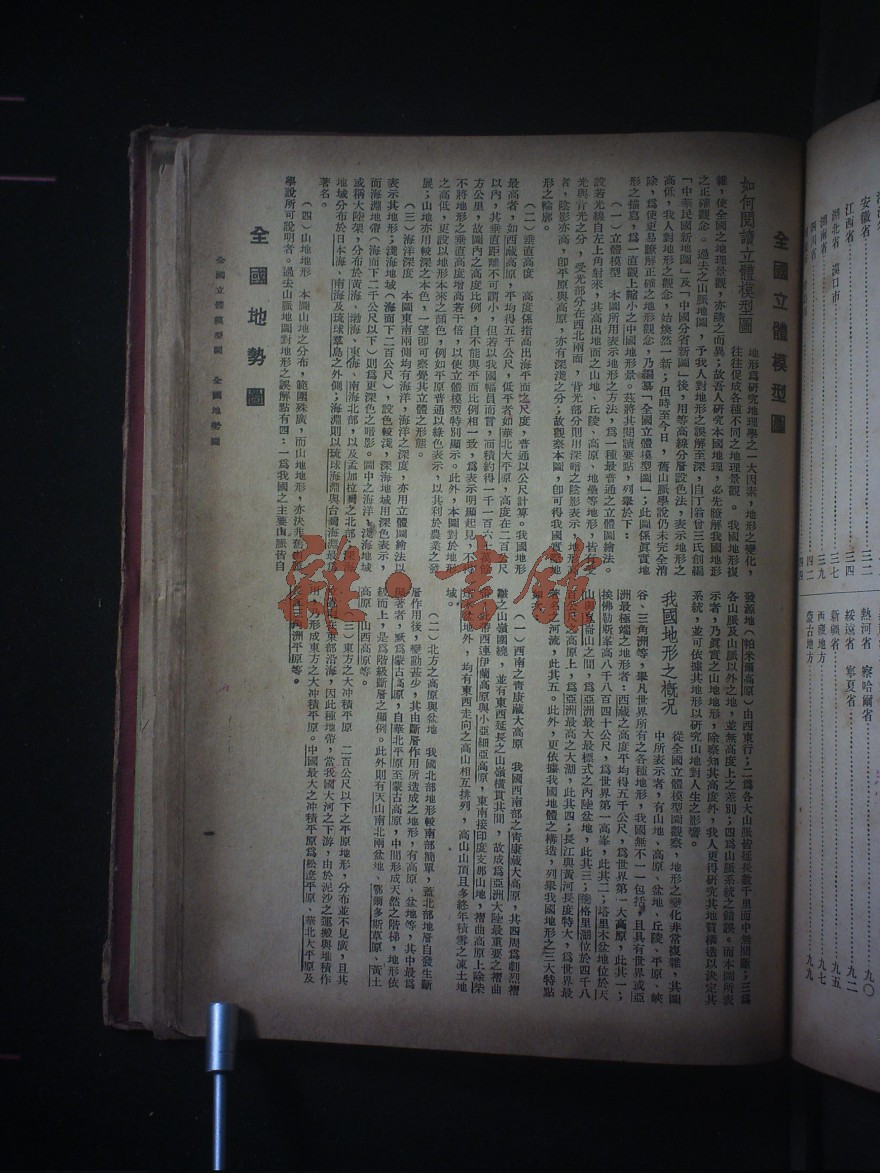 全國立體模型圖
如何閱讀立體模型圖
地形爲研究地理學之一大因素，地形之變化，
往往促成各種不同之地理景觀。我國地形複
雜，使全國之地理景觀，亦隨之而異；故吾人研究本國地理，必先瞭解我國地形
之正確觀念。過去之山脈地圖，予我人對地形之誤解至深，自丁翁曾三氏創編
「中華民國新地圖」及「中國分省新圖」後，用等高線分層設色法，表示地形之
高低，我人對地形之觀念，始煥然一新；但時至今日，舊山脈學說仍未完全消
除，爲使更易瞭解正確之地形觀念，乃編纂「全國立體模型圖」；此圖係眞實地
形之描寫，爲一直觀上縮小之中國地形景。茲將其閱讀要點，列舉於下：
（一）立體模型　本圖所用表示地形之方法，爲一種最普通之立體圖繪法。
設若光線自左上角射來，其高出地面之山地、丘陵、高原、地壘等地形，皆有受
光與背光之分，受光部分在西北兩面，背光部分則用深暗之陰影表示，地形高
者，陰影亦高，卽平原與高原，亦有深淺之分；故觀察本圖，卽可得我國眞實地
形之輪廓。
（二）垂直高度　高度係指高出海平面之垂直尺度，普通以公尺計算。我國地形
最高者，如西藏高原，平均得五千公尺，低平者如華北大平原，高度在二百公尺
以內，其垂直距離不可謂小，但若以我國幅員而言，面積約得一千一百六十萬
方公里，故圖內之高度比例，自不能與平面比例相一致，爲表示明顯起見，不得
不將地形之垂直高度增高若干倍，以使立體模型特別顯示。此外，本圖對於地形
之高低，更設以地形本來之顏色，例如平原普通以綠色表示，以其利於農業之發
展；山地亦用較深之本色，一望卽可察覺其立體之形態。
（三）海洋深度　本圖東南兩側均有海洋，海洋之深度，亦用立體圖繪法以
表示其地形；淺海地域（海面下二百公尺），設色較淺，深海地域用深色表示，
而海淵地帶（海面下二千公尺以下）則爲更深色之暗影。圖中之海洋，淺海地域
或稱大陸架，分布於黃海、渤海、東海、南海北部，以及孟加拉灣之北部，深海
地域分布於日本海、南海及琉球羣島之外側；海淵則以琉球海淵與台灣海淵最爲
著名。
（四）山地地形　本圖山地之分布，範圍殊廣，而山地地形，亦決非舊山脈
學說所可說明者。過去山脈地圖對地形之誤解點有四：一爲我國之主要山脈皆自
發源地（帕米爾高原）由西東行；二爲各大山脈皆延長數千里而中無間斷；三爲
各山脈及山脈以外之地，並無高度上之差別；四爲山脈系統之錯誤。而本圖所表
示者，乃眞實之山地地形，除察知其高度外，我人更得研究其地質構造以決定其
系統，並可依據其地形以研究山地對人生之影響。
我國地形之概況
從全國立體模型圖觀察，地形之變化非常複雜，其圖
中所表示者，有山地、高原、盆地、丘陵、平原、峽
谷、三角洲等，舉凡世界所有之各種地形，我國無不一一包括，且具有世界或亞
洲最極端之地形者：西藏之高度平均得五千公尺，爲世界第一大高原，此其一；
挨佛勒斯峯高八千八百四十公尺，爲世界第一高峯，此其二；塔里木盆地位於天
山與崑崙山之間，爲亞洲最大最標式之內陸盆地，此其三；騰格里湖位於四千八
百公尺之上，爲亞洲最高之大湖，此其四；長江與黃河長度特大，爲世界最
著名之河流，此其五。此外，更依據我國地體之構造，列舉我國地形之三大特點
如次：
（一）西南之靑康藏大高原　我國西南部之靑康藏大高原，其四周爲劇烈褶
皺之山嶺圍繞，並有東西延長之山嶺橫貫其間，故成爲亞洲大陸最重要之褶曲
地帶，西連伊蘭高原與小亞細亞高原，東南接印度支那山地，褶曲高原上除柴
達木盆地外，均有東西走向之高山相互排列，高山山頂且多終年積雪之凍土地
域。
（二）北方之高原與盆地　我國北部地形較南部簡單，蓋北部地層自發生斷
層作用後，變動甚少，其由斷層作用所造成之地形，有高原、盆地等，其中最爲
顯著者，厥爲蒙古高原，自華北平原至蒙古高原，中間形成天然之階梯，地形依
級而上，是爲階級斷層之顯例。此外則有天山南北兩盆地、鄂爾多斯草原、黃土
高原、山西高原等。
（三）東方之大冲積平原　二百公尺以下之平原地形，分布並不見廣，且其
位置均在東部沿海，因此種地帶，當我國大河之下游，由於泥沙之運搬與堆積作
用，乃形成東方之大冲積平原。中國最大之冲積平原爲松遼平原、華北大平原及
長江三角洲平原等。
全國地勢圖
全國立體模型圖　全國地勢圖
安徽省 三二
江西省 三四
湖北省　漢口市 三七
湖南省 三九
四川省 四二
四四
熱河省　察哈爾省 九〇
綏遠省　寧夏省 九二
新疆省 九五
西藏地方 九七
蒙古地方 九九
雜·書館